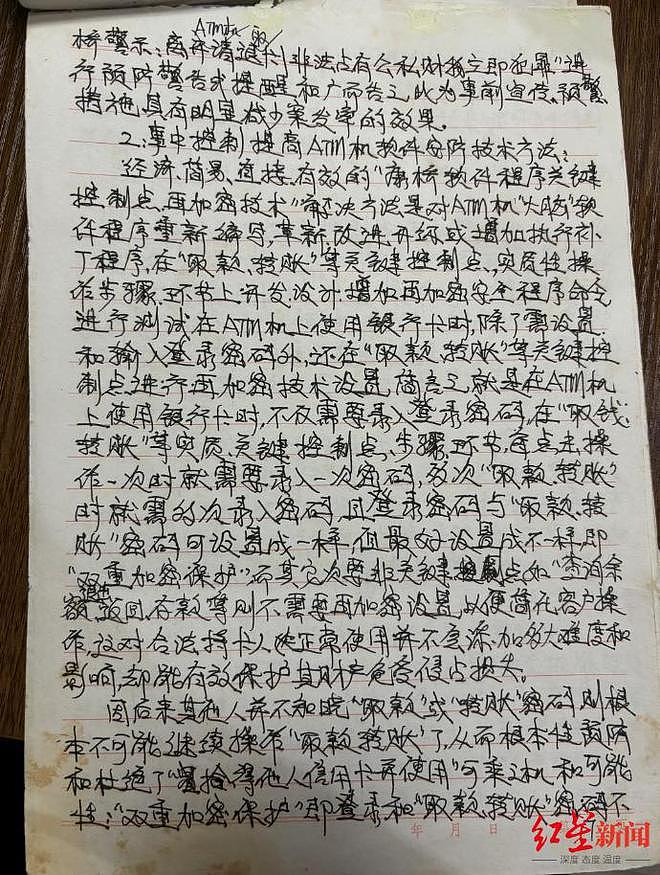 ATM机的
桥警示：底弃清退卡！非法占有公私财物立即犯罪"进
行预防警告式提醒和广而告之，此为事前宣传、预警
措施，具有明显减少案发率的效果。
2.事中控制 提高ATM机软件安防技术方法：
经济、简易、直接、有效的"廊桥软件程序关键
控制点再加密技术"解决方法是对ATM机"大脑"软
件程序重新编导，革新、改进、升级或增加执行补
丁程序，在"取款、转账"等关键控制点、实质性操
作步骤、环节上开发、设计增加再加密安全程序命令
进行测试在ATM机上使用银行卡时，除了需设置
和输入登录密码外，还在"取款、转账"等关键控
制点进行再加密技术设置，简言之就是在ATM机
上使用银行卡时，不仅需要录入登录密码，在"取钱、
转账"等实质、关键控制点、步骤、环节，每点击操
作一次时就需要录入一次密码，多次"取款、转账"
时就需多次录入密码，且登录密码与"取款、转
账"密码可设置成一样，但最好设置成不一样，即
"双重加密保护"而其它次要非关键控制点如"查询余
额、退出、返回、存款等则不需要再加密设置，以便简化客户操
作，这对合法持卡人他正常使用并不意添加多大难度和
影响，却能有效保护其财产免受侵占损失。
因后来其他人并不知晓"取款"或"转账"密码，则根
本不可能继续操作"取款、转账"了，从而根本性预防
和杜绝了"冒拾得他人信用卡并使用"可乘之机和可能
性；"双重加密保护"即登录和"取款、转账"密码不
年 月 日
红星新闻
深度 态度 温度